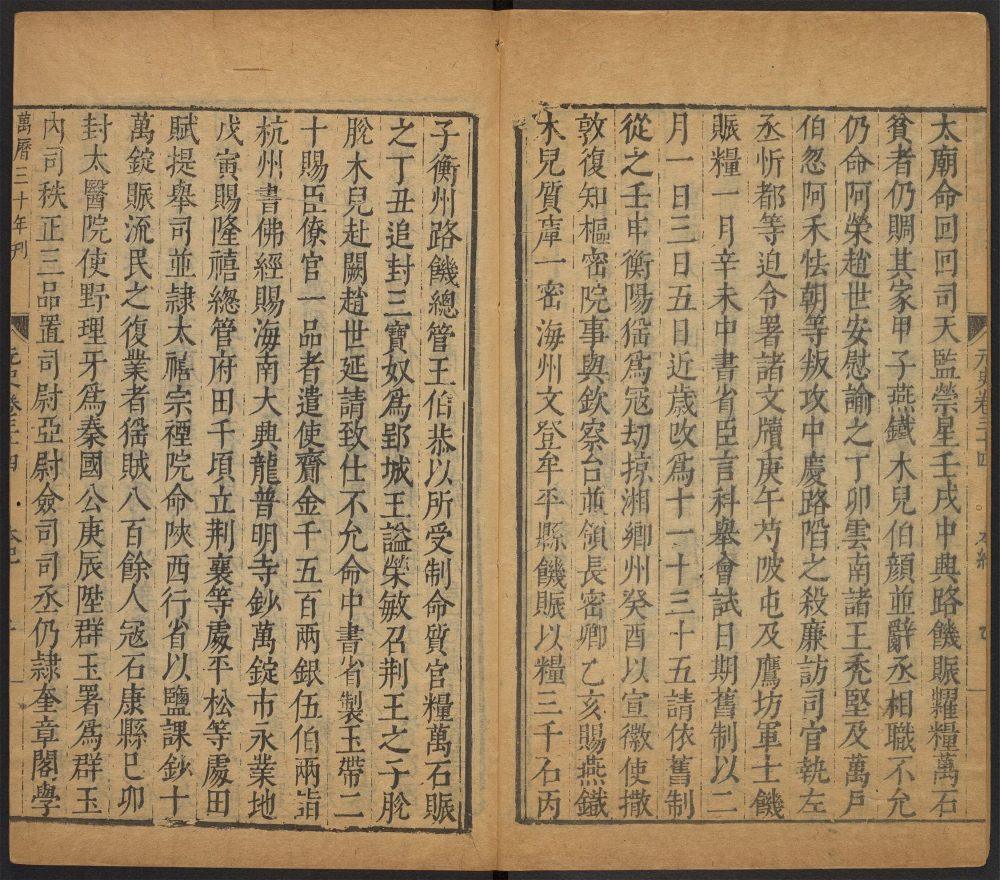 太廟命回回司天監禜星壬戌中興路饑賑糶糧萬石
貧者仍賙其家甲子燕鐵木兒伯顔並辭丞相職不允
仍命阿榮趙世安慰諭之丁卯雲南諸王禿堅及萬戶
伯忽阿禾怯朝等叛攻中慶路陷之殺廉訪司官執左
丞忻都等迫令署諸文牘庚午芍陂屯及鷹坊軍士饑
賑糧一月辛未中書省臣言科舉會試日期舊制以二
月一日三日五日近歲改爲十一十三十五請依舊制
從之壬申衡陽猺爲冦刧掠湘鄉州癸酉以宣徽使撒
敦復知樞密院事與欽察台並領長密卿乙亥賜燕鐵
木兒質庫一密海州文登牟平縣饑賑以糧三千石丙
元史卷三十四 本紀
子衡州路饑總管王伯恭以所受制命質官糧萬石賑
之丁丑追封三寶奴爲郢城王謚榮敏召荆王之子脫
脫木兒赴闕趙世延請致仕不允命中書省製玉帶二
十賜臣僚官一品者遣使齎金千五百兩銀伍伯兩詣
杭州書佛經賜海南大興龍普明寺鈔萬錠市永業地
戊寅賜隆禧總管府田千頃立荆襄等處平松等處田
賦提舉司並隷太禧宗禋院命陜西行省以鹽課鈔十
萬錠賑流民之復業者猺賊八百餘人冦石康縣巳卯
封太醫院使野理牙爲秦國公庚辰陞群玉署爲群玉
內司秩正三品置司尉亞尉僉司司丞仍隷奎章閣學
萬曆三十年刊
元史卷三十四 本紀